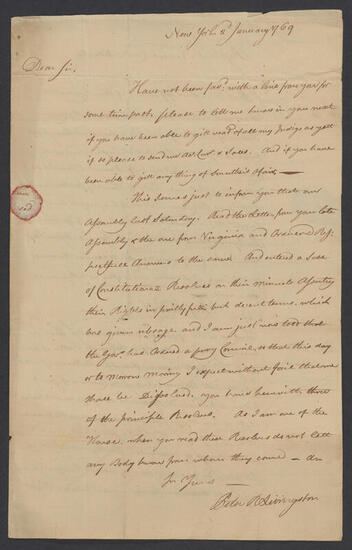 New York 2 January 1769
Dear Sir,
Have not been favd. with a line from you for
some time past, please to tell me know in your next
if you have been able to gitt read of all my Indigo as yett
if so please to send me Act Curt & Sales. And if you have
been able to gitt any thing of Smith's Afair —
This serves just to inform you that our
Assembly last Saturday. Read the Letter from your late
Assembly & the one from Virginia and Ordered Res:
pectfull Answers to the same And entered a Sett
of Constitutional Resolves on their minuets Asserting
their Rights in pritty plain but decent terms, which
has given umbrage and I am just now told that
the Govr. has Ordered a privy Council, so that this day
or to morrow morning I expect without fail that we
shall be Disolved, you have herewith three
of the principle Resolves. As I am one of the
House, when you read these Resolves do not lett
any Body know from whom they comed — am
Sr Yours —
Peter R Livingston